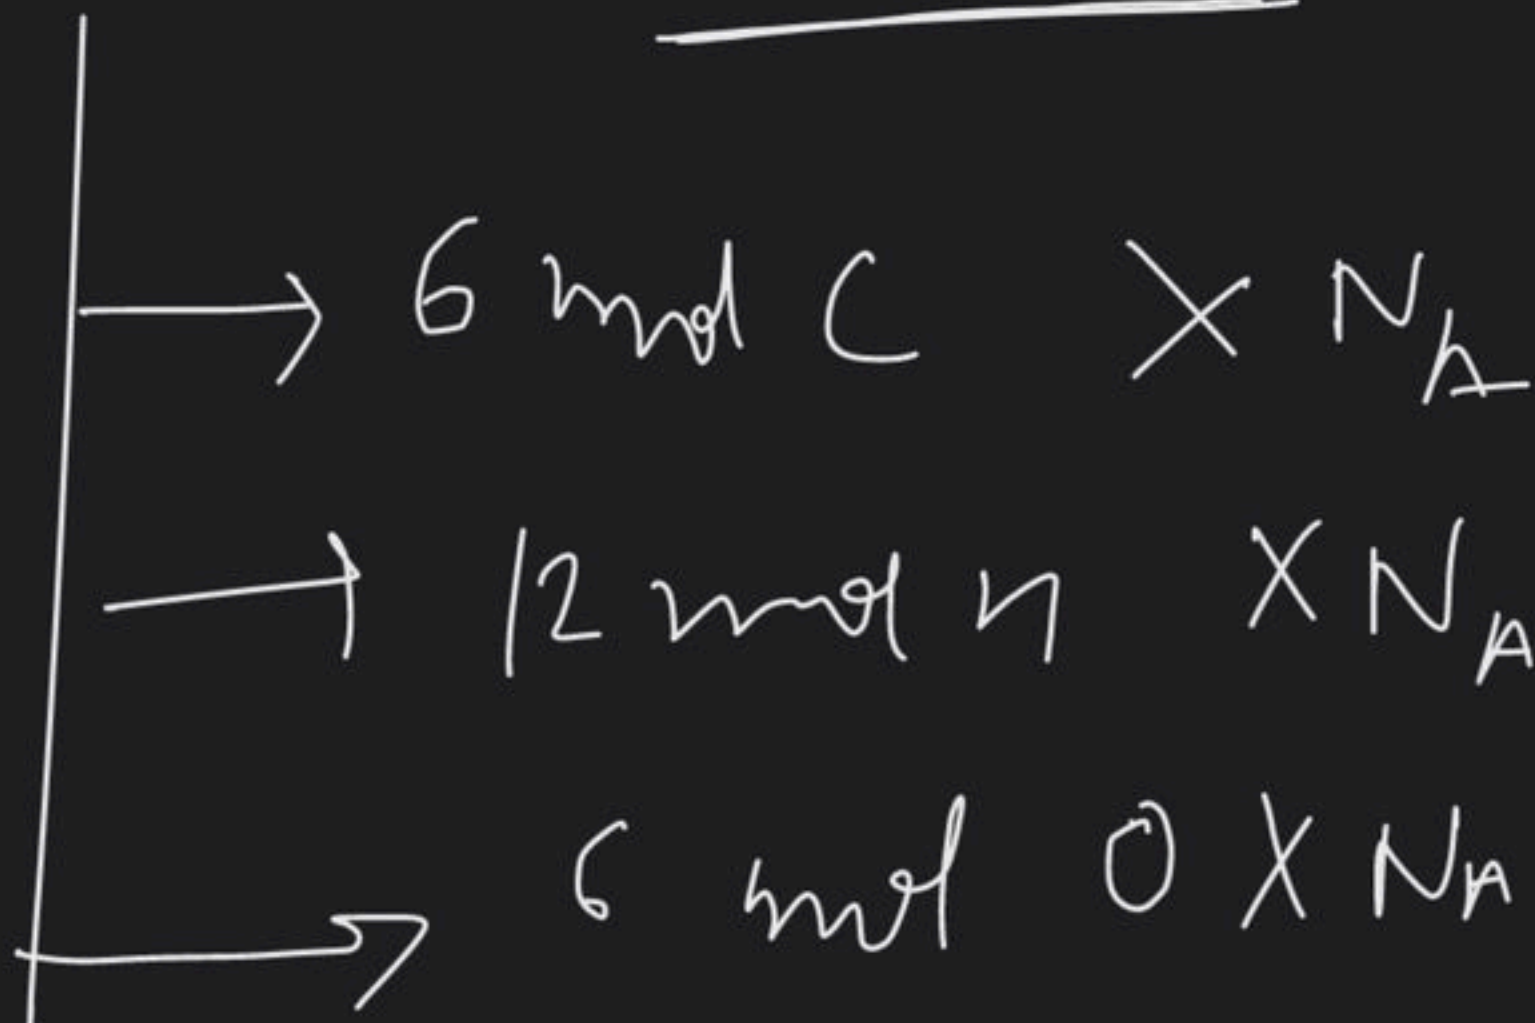 → 6 mol C × N_A
→ 12 mol H × N_A
→ 6 mol O × N_A